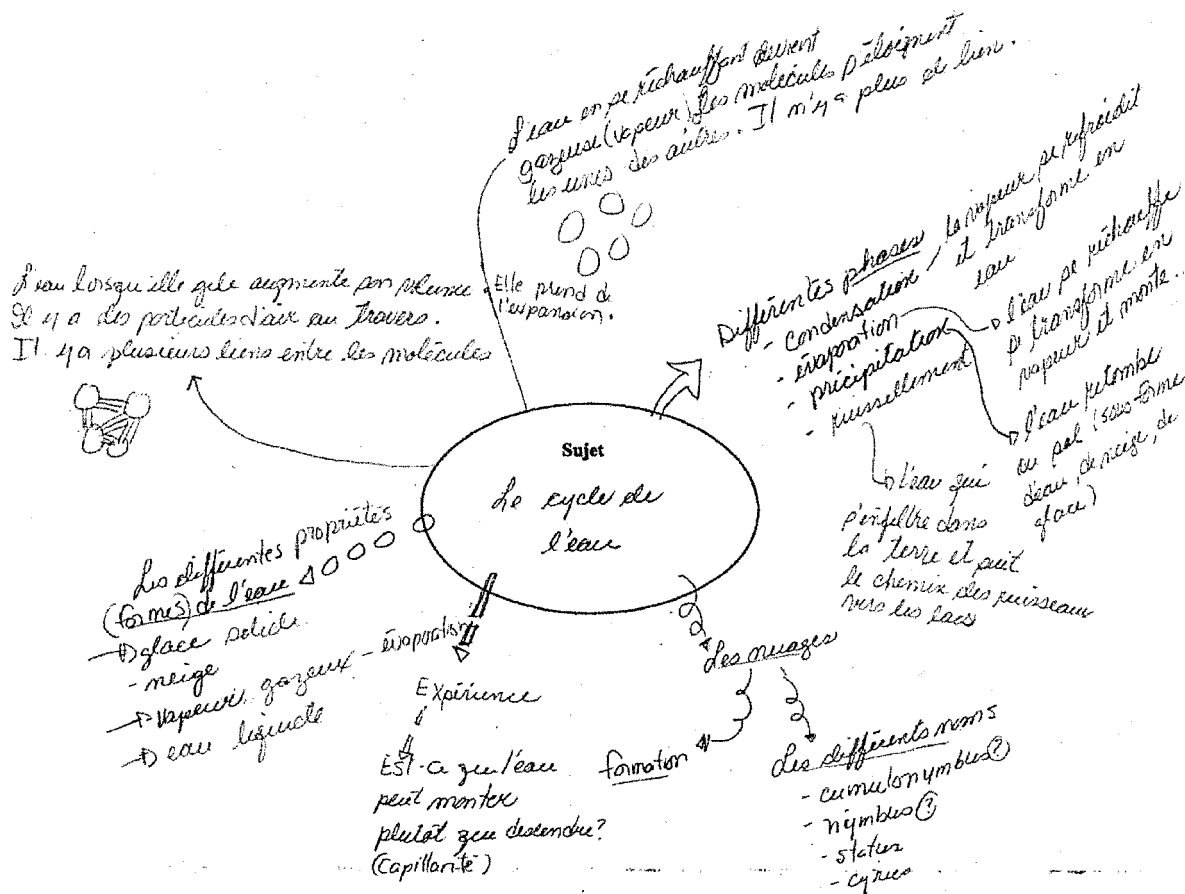 L'eau en se réchauffant devient
gazeuse (vapeur). Les molécules s'éloignent
les unes des autres. Il n'y a plus de lien.
Elle prend de
l'expansion.
L'eau lorsqu'elle gèle augmente son volume.
Il y a des particules d'air au travers.
Il y a plusieurs liens entre les molécules
Différentes phases
- condensation
- évaporation
- précipitation
- ruissellement
la vapeur se refroidit
et transforme en
eau
l'eau se réchauffe
se transforme en
vapeur et monte..
l'eau retombe
au sol (sous forme
d'eau, de neige, de
glace)
l'eau qui
s'infiltre dans
la terre et suit
le chemin des ruisseau
vers les lacs
Sujet
Le cycle de
l'eau
Les différentes propriétés
(formes) de l'eau
glace solide
- neige
vapeur gazeux - évaporation
eau liquide
Expérience
Est-ce que l'eau
peut monter
plutôt que descendre?
(Capillarité)
Les nuages
formation
Les différents noms
- cumulonymbus ?
- nymbus ?
- status
- cyrus